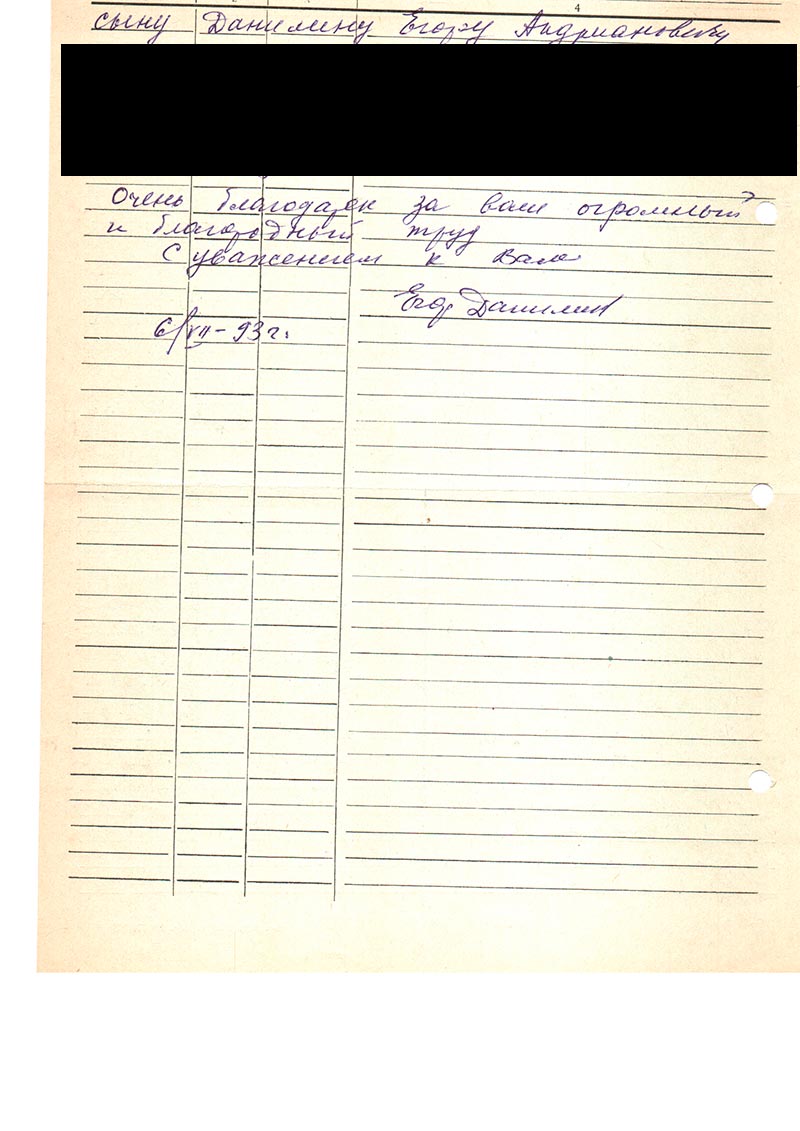 4
сыну Данилину Егору Андриановичу
Очень благодарен за ваш огромный
и благородный труд
С уважением к Вам
Егор Данилин
6/VII-93г.